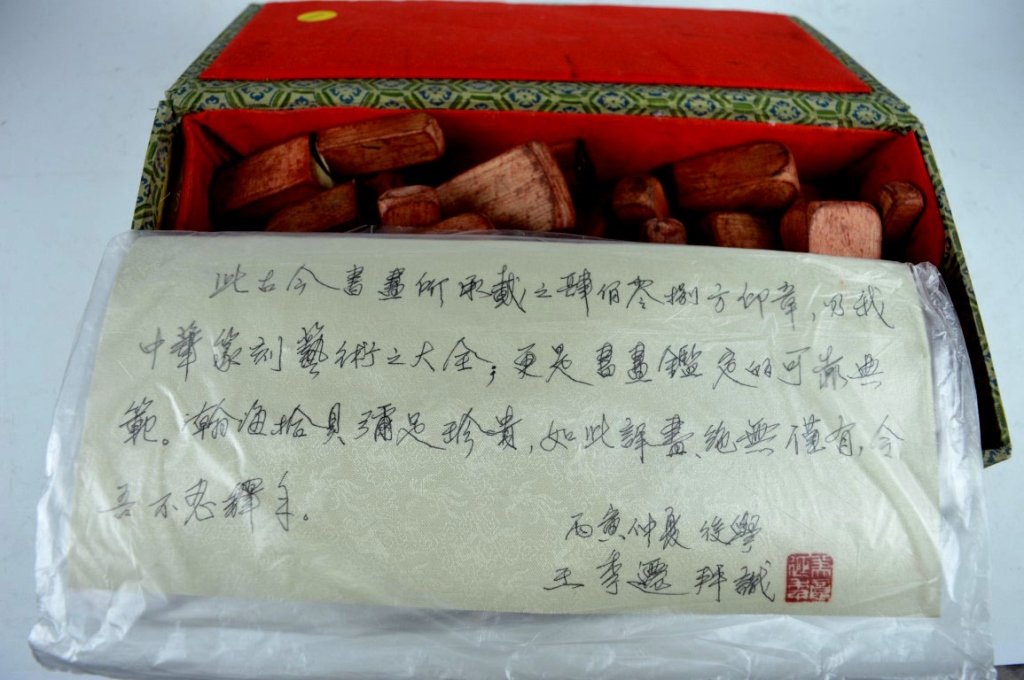 此古今書畫所承載之肆佰零捌方印章，乃我
中華篆刻藝術之大全；更是書畫鑑定的可靠典
範。瀚海拾貝彌足珍貴，如此詳盡、絕無僅有，令
吾不忍釋手。
丙寅仲夏 後學
王季遷 拜識